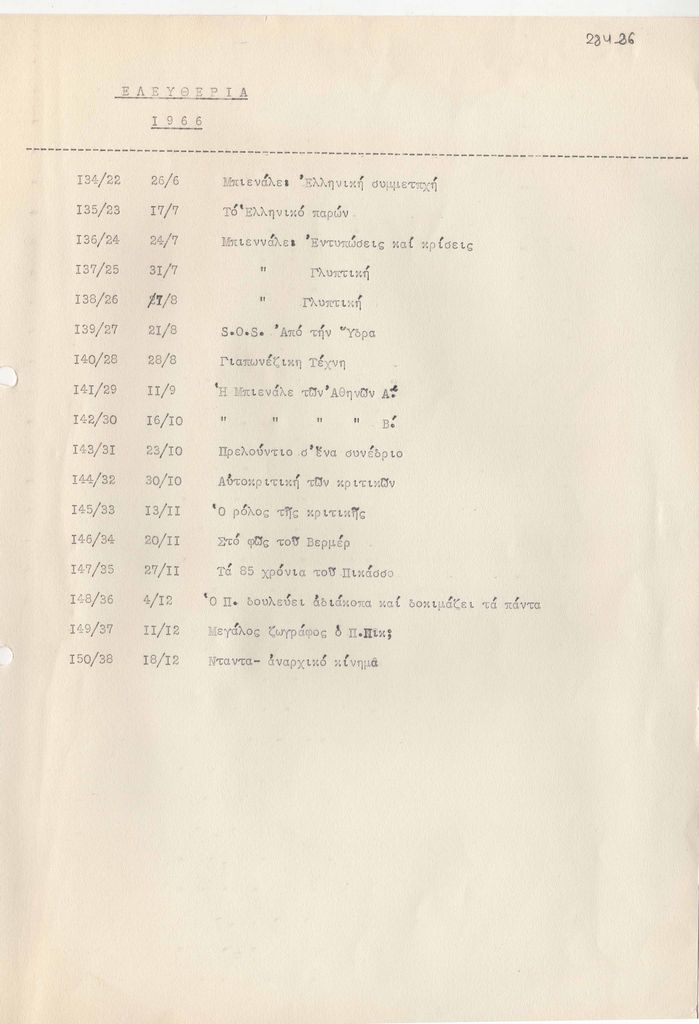 ΕΛΕΥΘΕΡΙΑ
1966
134/22 26/6 Μπιενάλε: Ἑλληνική συμμετπχή
135/23 17/7 Τό Ἑλληνικό παρών
136/24 24/7 Μπιεννάλε: Ἐντυπώσεις καί κρίσεις
137/25 31/7 " Γλυπτική
138/26 /8 " Γλυπτική
139/27 21/8 S.O.S. Ἀπό τήν Ὕδρα
140/28 28/8 Γιαπωνέζικη Τέχνη
141/29 11/9 Ἡ Μπιενάλε τῶν Ἀθηνῶν Α.
142/30 16/10 " " " " Β.
143/31 23/10 Πρελούντιο σ'ἕνα συνέδριο
144/32 30/10 Αὐτοκριτική τῶν κριτικῶν
145/33 13/11 Ὁ ρόλος τῆς κριτικῆς
146/34 20/11 Στό φῶς τοῦ Βερμέρ
147/35 27/11 Τά 85 χρόνια τοῦ Πικάσσο
148/36 4/12 Ὁ Π. δουλεύει ἀδιάκοπα καί δοκιμάζει τά πάντα
149/37 11/12 Μεγάλος ζωγράφος ὁ Π.Πικ;
150/38 18/12 Νταντα- ἀναρχικό κίνημα